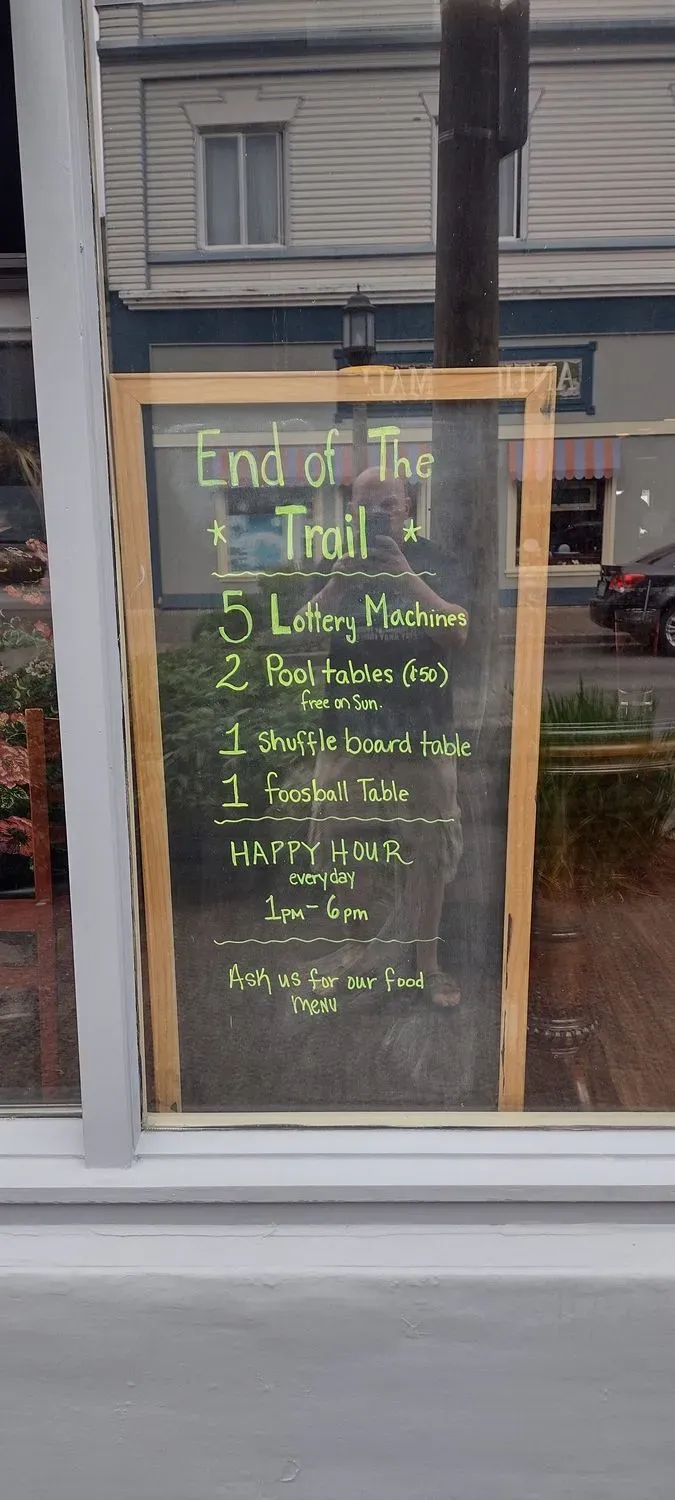 ANTIQUE MALL
End of The
* Trail *
5 Lottery Machines
2 Pool tables (¢50)
free on Sun.
1 shuffle board table
1 foosball Table
HAPPY HOUR
everyday
1pm - 6pm
Ask us for our food
menu